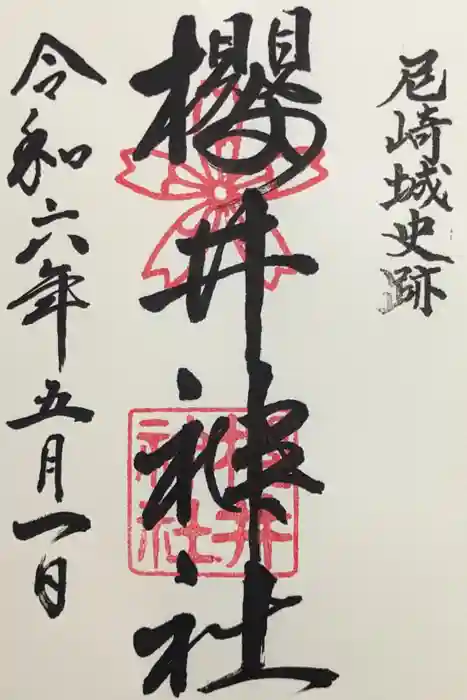 尼崎城史跡
櫻井神社
櫻井
神社
令和六年五月一日